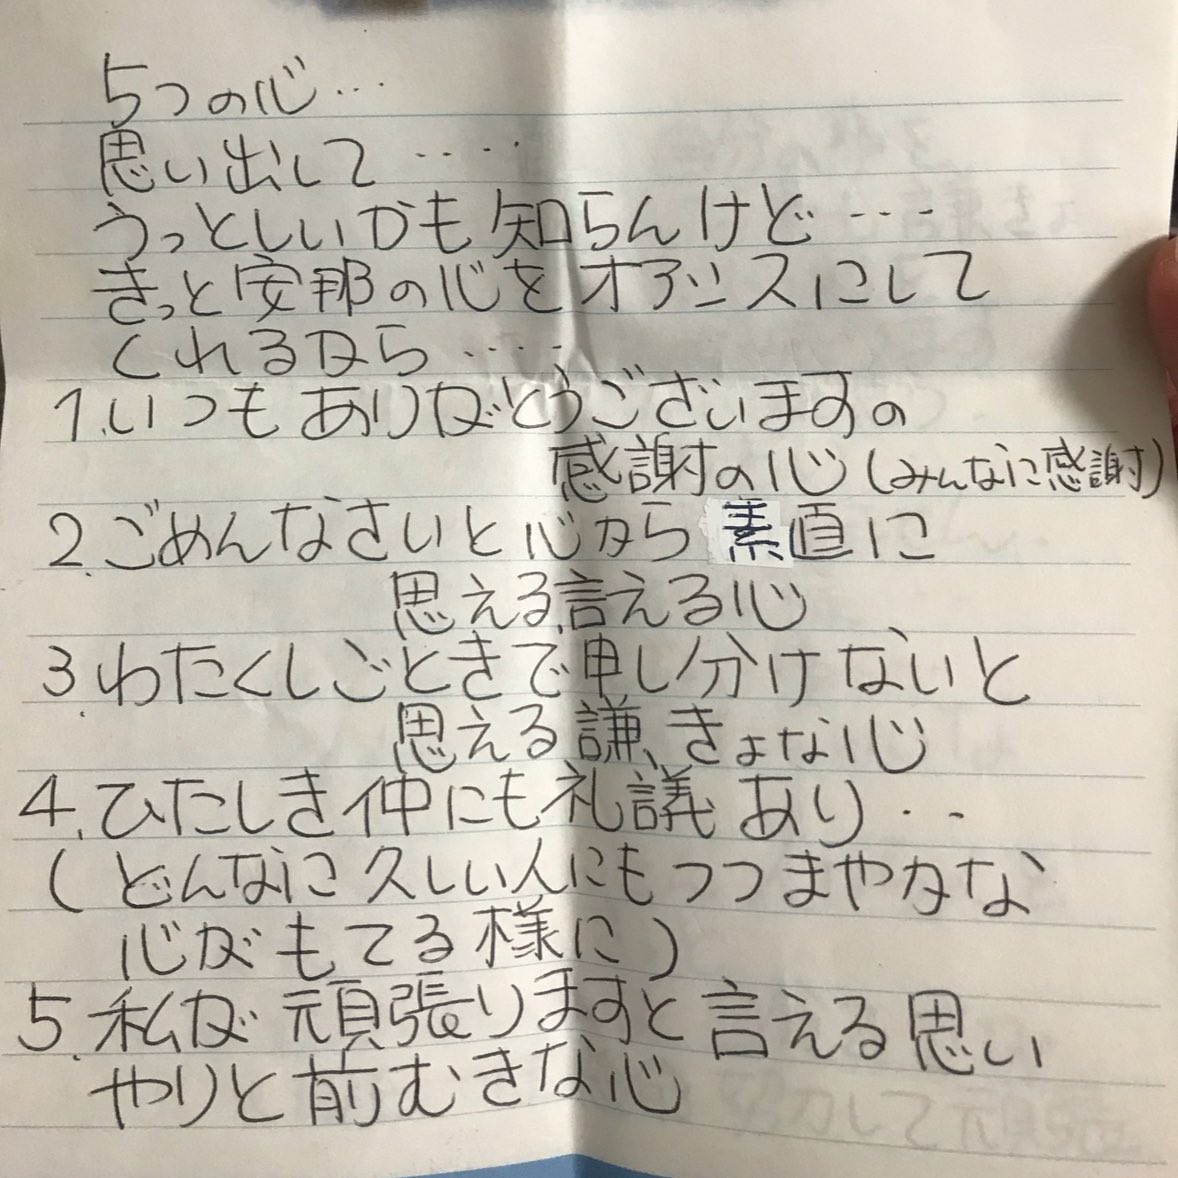 5つの心…
思い出して‥‥‥
うっとしいかも知らんけど‥‥
きっと安那の心をオアシスにして
くれるなら‥‥‥
1.いつもありがとうございますの
感謝の心(みんなに感謝)
2.ごめんなさいと心から素直に
思える、言える心
3.わたくしごときで申し分けないと
思える謙、きょな心
4.ひたしき仲にも礼議あり‥
(どんなに久しい人にもつつまやかな
心がもてる様に)
5.私が頑張りますと言える思い
やりと前むきな心